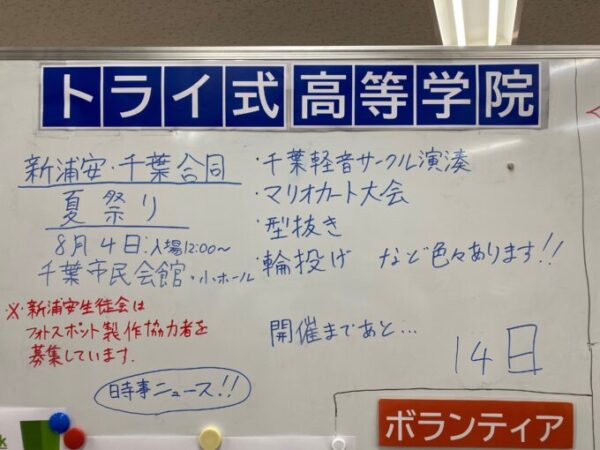 トライ式高等学院
新浦安・千葉合同
夏祭り
8月4日:入場12:00〜
千葉市民会館・小ホール
※新浦安生徒会は
フォトスポット製作協力者を
募集しています.
時事ニュース!!
・千葉軽音サークル演湊
・マリオカート大会
・型抜き
・輪投げ など色々あります!!
開催まであと…
14日
ボランティア